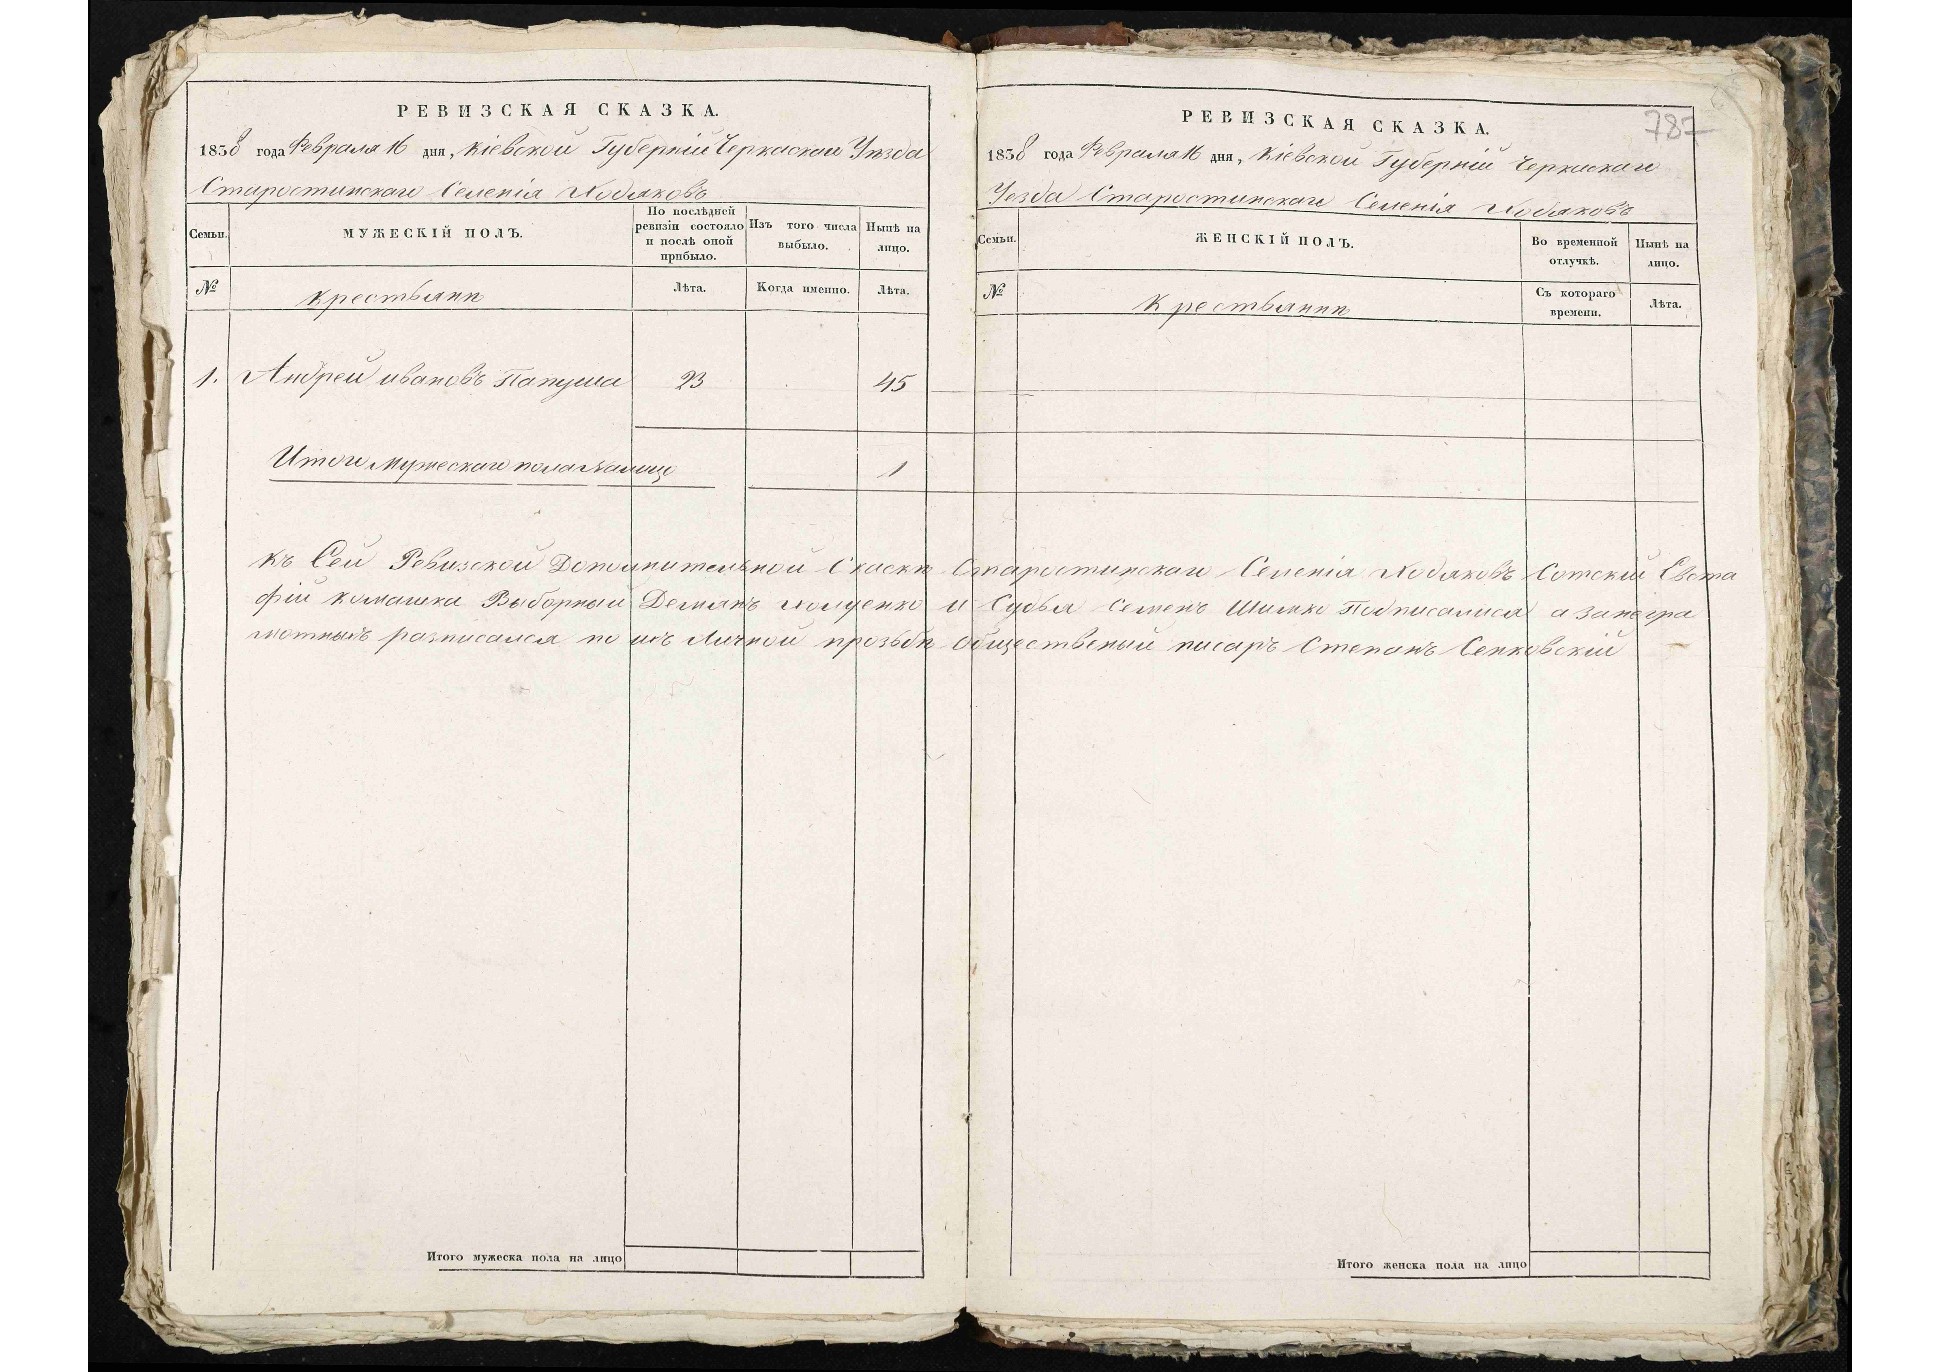 РЕВИЗСКАЯ СКАЗКА.
1858 года Февраля 16 дня, Кіевской Губерній Черкаскаго Уѣзда
Старостинскаго Селенія Ходяковъ
Семьи.
МУЖЕСКІЙ ПОЛЪ.
По послѣдней ревизіи состояло и послѣ оной прибыло.
Изъ того числа выбыло.
Нынѣ на лицо.
№
крестьянѣ
Лѣта.
Когда именно.
Лѣта.
1. Андрей ивановъ Папуша 23 45
Итого мужескаго пола налицо 1
787
РЕВИЗСКАЯ СКАЗКА.
1858 года Февраля 16 дня, Кіевской Губерній Черкаскаго
Уезда Старостинскаго Селенія Ходяковъ
Семьи.
ЖЕНСКІЙ ПОЛЪ.
Во временной отлучкѣ.
Нынѣ на лицо.
№
Крестьянѣ
Съ котораго времени.
Лѣта.
Къ Сей Ревизской Дополнительной Скаски Старостинскаго Селенія Ходяковъ Сотскій Евста
фій комашка Выборный Демянъ Холуенко и Судья Семенъ Шимко Подписалися а занегра
мотныхъ разписался по ихъ Личной прозьбѣ Общественый писарь Степанъ Сенковскій
Итого мужеска пола на лицо
Итого женска пола на лицо